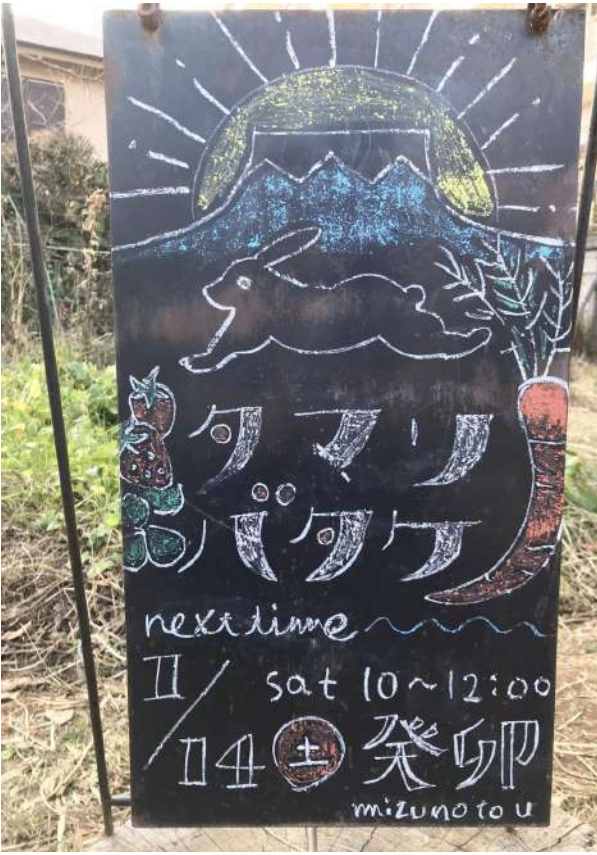 タマリ
バタケ
next time
1/ sat 10~12:00
14 土 癸卯
mizunoto u